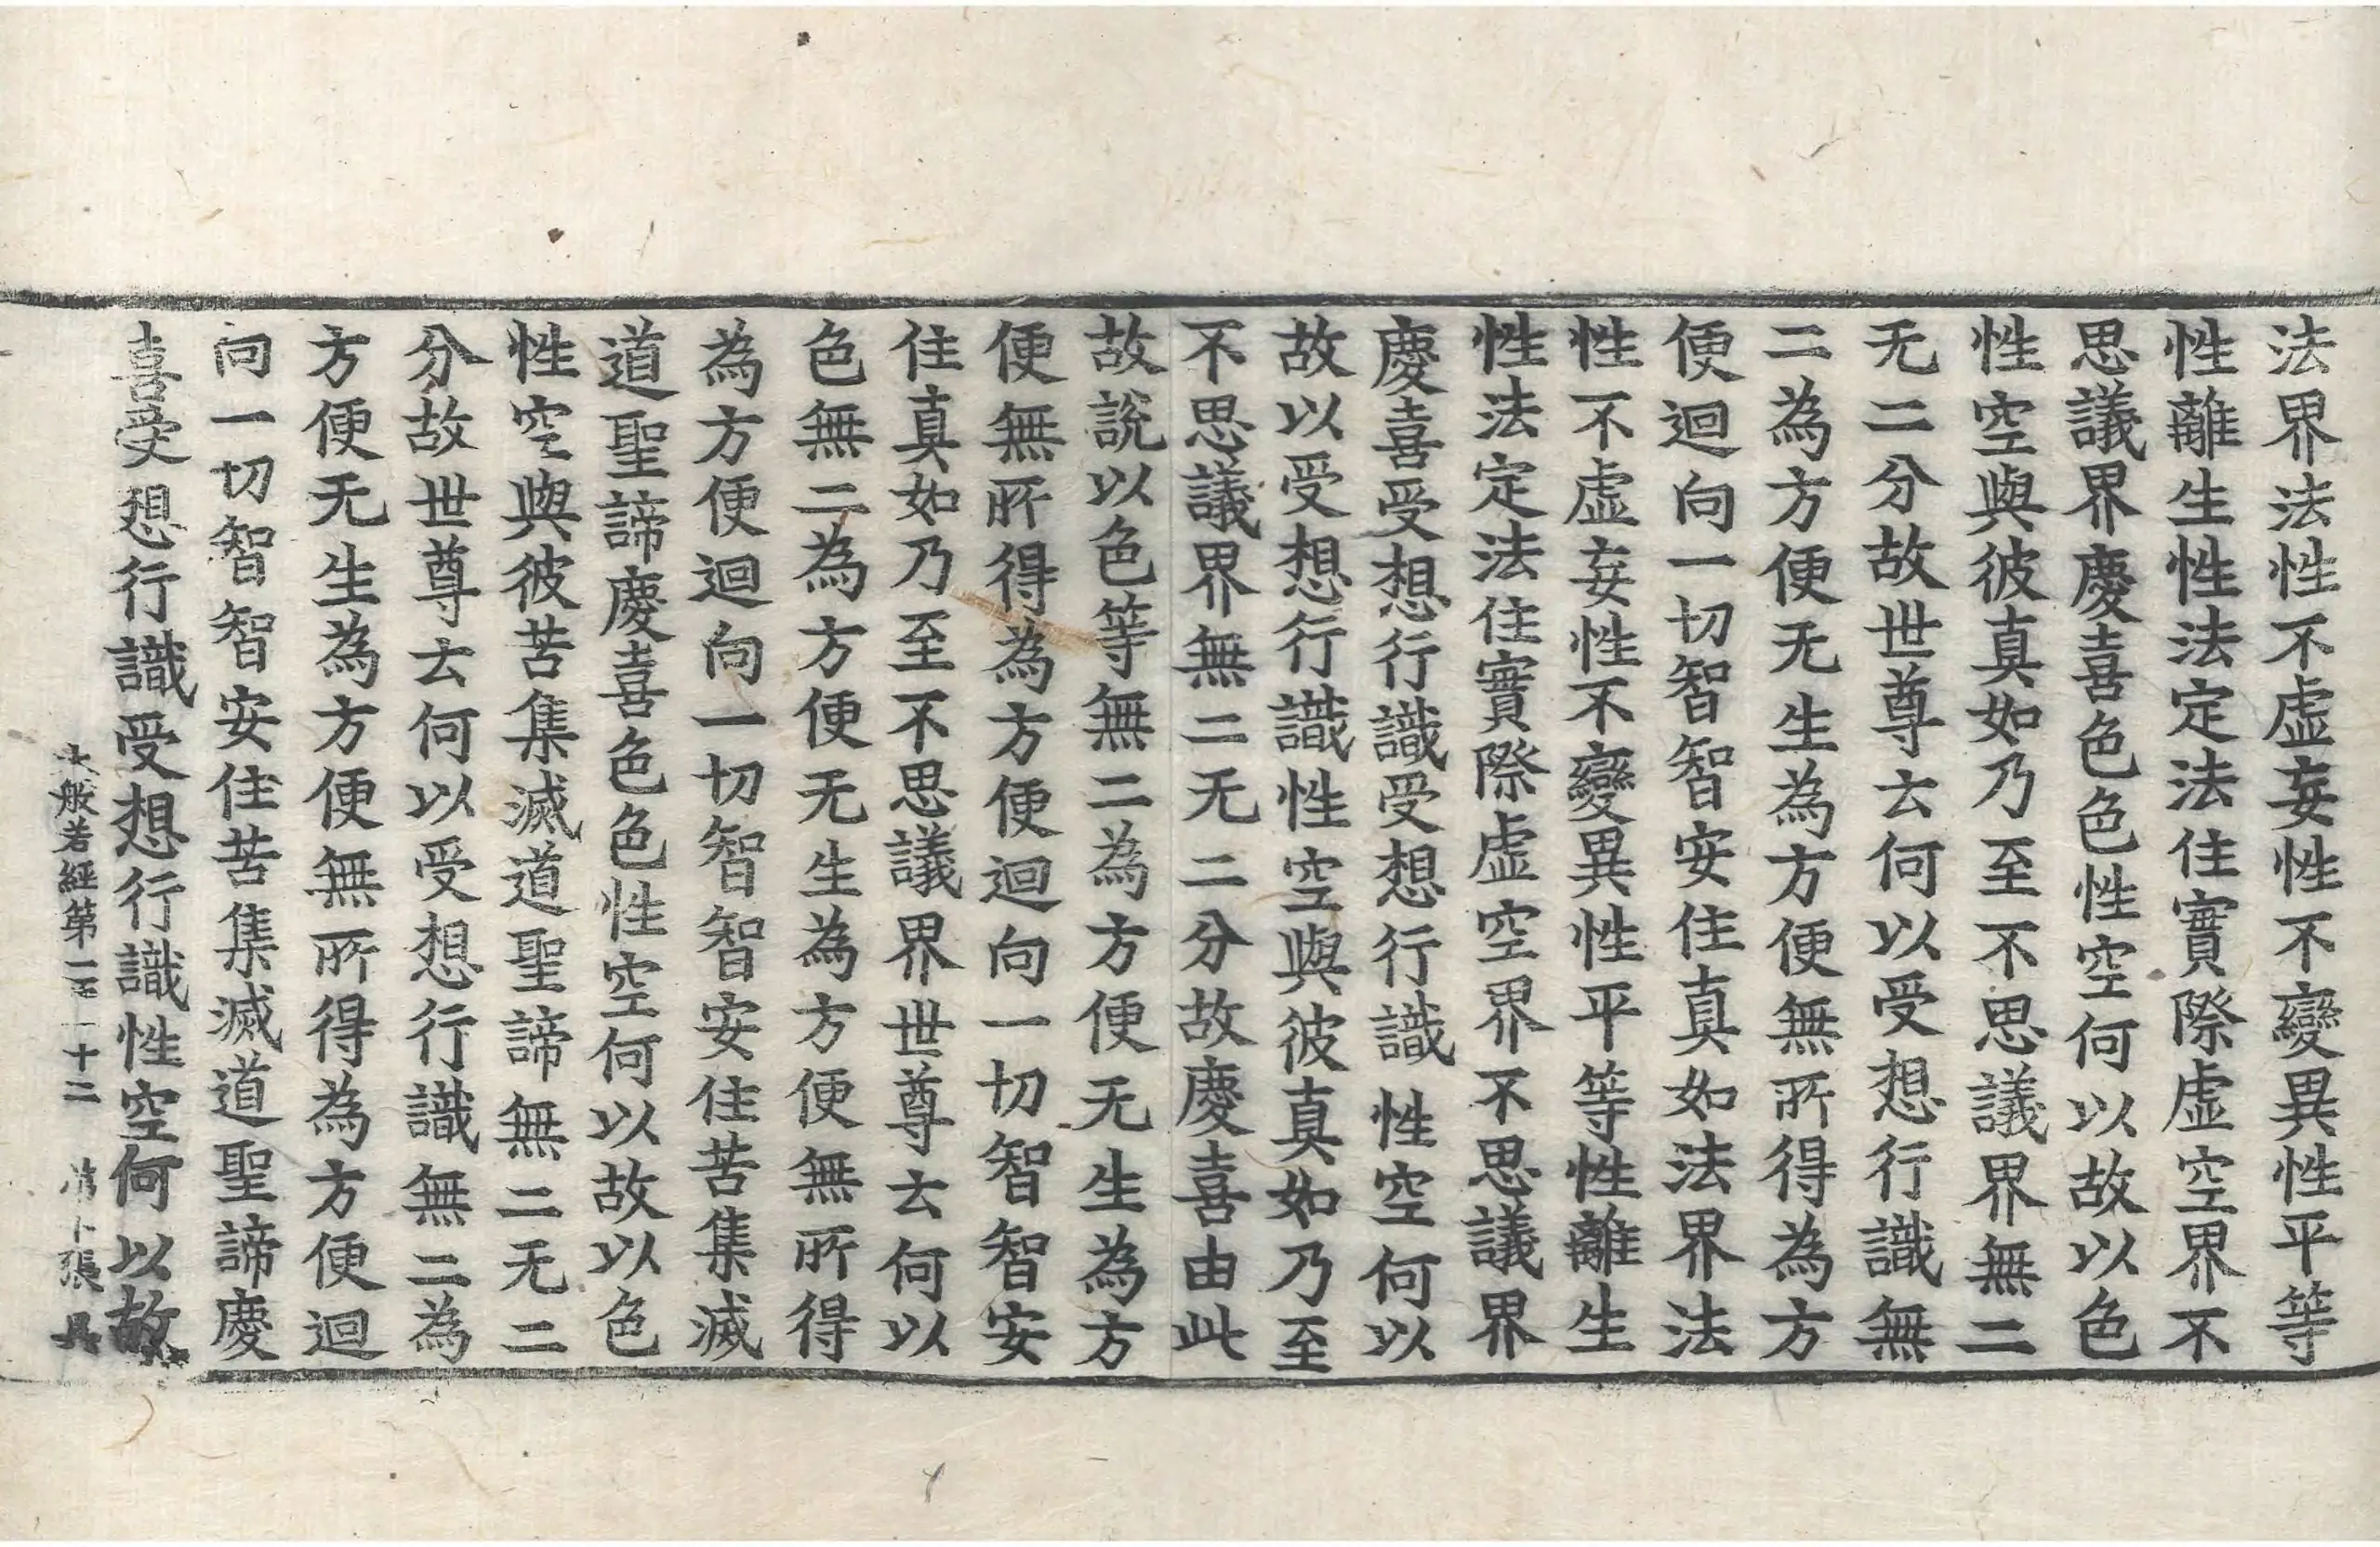 法界法性不虛妄性不變異性平等
性離生性法定法住實際虛空界不
思議界慶喜色色性空何以故以色
性空與彼真如乃至不思議界無二
无二分故世尊云何以受想行識無
二為方便无生為方便無所得為方
便迴向一切智智安住真如法界法
性不虛妄性不變異性平等性離生
性法定法住實際虛空界不思議界
慶喜受想行識受想行識性空何以
故以受想行識性空與彼真如乃至
不思議界無二无二分故慶喜由此
故說以色等無二為方便无生為方
便無所得為方便迴向一切智智安
住真如乃至不思議界世尊云何以
色無二為方便无生為方便無所得
為方便迴向一切智智安住苦集滅
道聖諦慶喜色色性空何以故以色
性空與彼苦集滅道聖諦無二无二
分故世尊云何以受想行識無二為
方便无生為方便無所得為方便迴
向一切智智安住苦集滅道聖諦慶
喜受想行識受想行識性空何以故
大般若經第一百一十二 第卜張 具